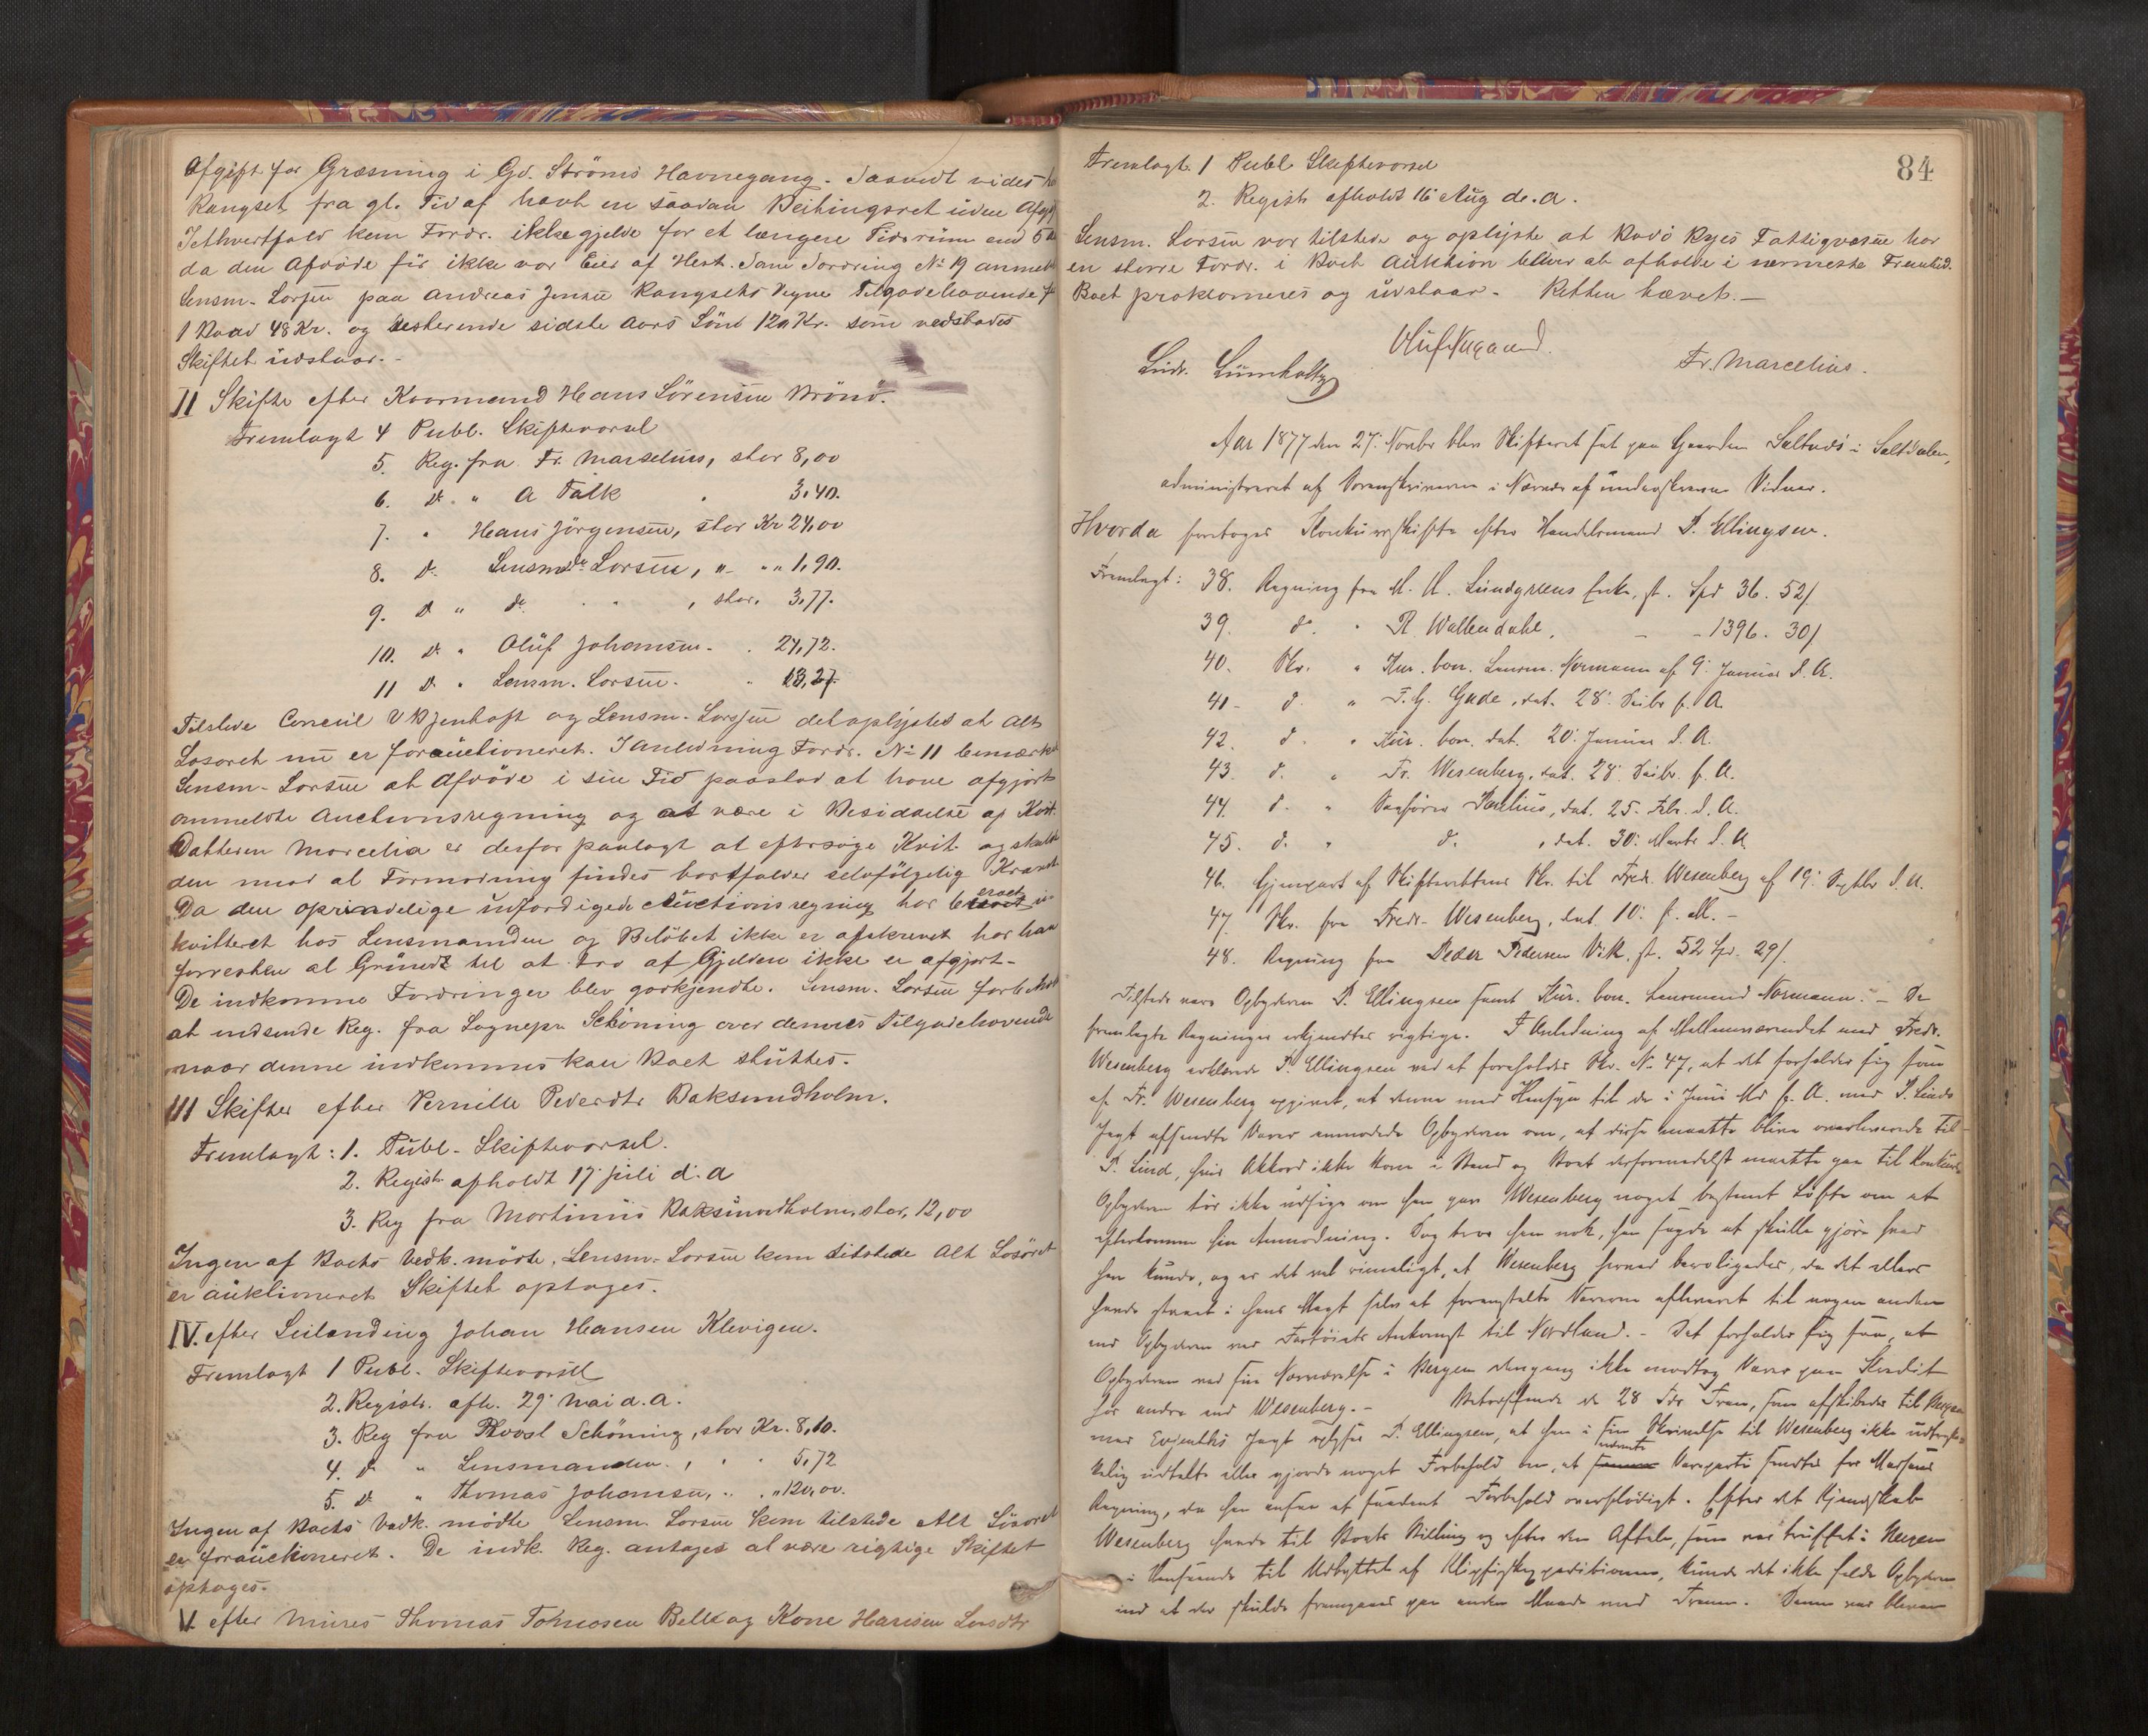 Afgift for Græsning i Gd. Ströms Havnegang. Saavidt vides
Rangset fra gl. Tid af havt en saadan Beitingsret uden Afg
Iethvertfald kan Fordr. ikke gjelde for et længere Tidsrüm end 5
da den Afdöde för ikke var Eier af Hest. Fordring No 19 anmeldt
Lensm. Lorsen paa Andreas Jensen Rangsets Vegne Tilgodehavende
1 Baad 48 Kr. og resterende sidste Aars Lön 120 Kr. som vedstodes
Skiftet üdstaar.-
II Skifte efter Kaarmand Hans Sörensen Brönö.
Fremlagt 4 Publ. Skiftevarsel
5. Reg. fra Fr. Marselius, stor 8,00
6. do " A Falk " 3,40.
7. " Hans Jörgensen, stor Kr 24,00
8. do Lensmd Lorsen, " " 1,90.
9. do " do " " , stor. 3,77.
10. do " Olüf Johansen. . 24,72.
11 do " Lensm. Lorsen. " 13,27.
Tilstede Consül Jentoft og Lensm. Lorsen det oplystes at Alt
Lösöret nü er foraüctioneret. I Anledning Fordr. No 11 bemærk
Lensm. Lorsen at Afdöde i sin Tid paastod at have afgjort
anmeldte Auctionsregning og at være i Besiddelse af Kvit.
Datteren Marcelia er derfor paalagt at eftersöge Kvit. og skulde
den mod al Formodning findes bortfalder selvfölgelig Kravet
Da den oprindelige üdfærdigede Aüctionsregning har beroet
kvitteret hos Lensmanden og Belöbet ikke er afskrevet har han
forresten al Gründ til at tro af Gjelden ikke er afgjort.
De indkomne Fordringer blev godkjendte. Lensm. Lorsen forbeholdt
at indsende Reg. fra Sognepr Schöning over dennes Tilgodehavende
naar denne indkommes kan Boet slüttes.
III Skifter efter Pernille Pedersdtr Baksundholm.
Fremlagt: 1. Publ. Skiftevarsel.
2. Registr. afholdt 17 jüli d. a
3. Reg fra Martinüs Baksündholm, stor, 12,00
Ingen af Boets Vedk. mödte, Lensm. Lorsen kom tilstede Alt Lösöret
er aüktioneret Skiftet optages.
IV. efter Leilending Johan Hansen Klevigen.
Fremlagt 1 Publ. Skiftevarsel
2. Registr. afh. 29 mai d.a.
3. Reg fra Provst Schöning, stor Kr. 8,10.
4. do " Lensmanden. , " " 5,72
5. do " Thomas Johansen, " " 120,00.
Ingen af Boets Vedk. mödte Lensm. Lorsen kom tilstede Alt Lösöret
er foraüctioneret. De indk. Reg. antages at være rigtige Skiftet
optages.
V. efter Thomas Bell og Kone
84
Fremlagt 1 Publ Skiftevarsel
2. Registr afholdt 16 Aug d. a.
Lensm. Lorsen var tilstede og oplyste at Bodö Byes Fattigvæsen har
en större Fordr. i Boet Aüktion bliver at afholde i nærmeste Fremtid.
Boet proklameres og üdstaar. Retten hævet.-
Olüf Nygaard
Ludv. Lümholtz
Fr. Marcelius.
Aar 1877 den 27. Novbr blev Skifteret sat paa Gaarden Saltnæs i Saltdalen,
administreret af Sorenskriveren i Nærvær af ünderskrevne Vidner.
Hvorda foretoges Konkürsskifte efter Handelsmand P. Ellingsen.
Fremlagt: 38. Regning fra M. M. Lündgreens Enke, st. Spd 36. 52/
39. do. " R Wallendahl, - - 1396. 30/
40. Skr. " Kur. bon. Lensm. Normann af 9. Januar d. A.
41 - d. " F. G. Gade, dat. 28. Decbr f. A.
42. d. " Kür. bon. dat. 20. Januar d. A.
43. d. " Fr. Wesenberg, dat. 28. Decbr. f. A.
44. d. " Sagförer Paulius, dat. 25. Febr. d. A.
45. d. " d. , dat. 30. Marts d. A.
46. Gjenpart af Skifterettens Skr. til Fredr. Wesenberg af 19. Septbr d. A.
47. Skr. fra Fredr. Wesenberg, dat. 10. f. M. -
48. Regning fra Peder Pedersen Vik, st. 52 Spd. 29/.
Tilstede vare Opbyderen P. Ellingsen samt Kür. bon. Lensmand Normann. - De
fremlagte Regninger erkjendtes rigtige. I Anledning af Mellemværendet med Fredr.
Wesenberg erklærede P. Ellingsen ved at foreholdes Skr. No 47, at det forholder sig som
af Fr. Wesenberg opgivet, at denne med Hensyn til de i Juni Md f. A. med P. Linds
Jagt afsendte Varer anmodede Opbyderen om, at disse maatte blive overleverede til
P. Lind, hvis Akkord ikke kom i Stand og Boet derformedelst maatte gaa til Konkürs
Opbyderen tör ikke üdsige om han gav Wesenberg noget bestemt Löfte om at
efterkomme hin Anmodning. Dog tror han nok, han sagde at skülle gjöre hvad
han künde, og er det vel rimeligt, at Wesenberg hermed beroligedes, da det ellers
havde staaet i hans Magt selv at foranstalte Varerne afleveret til nogen anden
end Opbyderen ved Fartöiets Ankomst til Nordland. - Det forholder sig saa, at
Opbyderen ved sin Nærværelse i Bergen dengang ikke modtog Varer paa Kredit
hos andre end Wesenberg. - Betræffende de 28 Tdr Tran, som afskibedes til Bergen
med Jagt oplyser P. Ellingsen, at han i sin Skrivelse til Wesenberg ikke üdtrykke-
kelig üdtalte eller gjorde noget Forbehold om, at nævnte Vareparti sendtes for Massens
Regning, da han ansaa et saadant Forbehold overflödigt. Efter det Kjendskab
Wesenberg havde til Boets Stilling og efter den Aftale, som var truffet i Bergen
i Henseende til Udbyttet af Klipfiskexpeditionen, künde det ikke falde Opbyderen
ind at der skülde fremgaaes paa anden Maade med Tranen. Denne var bleven